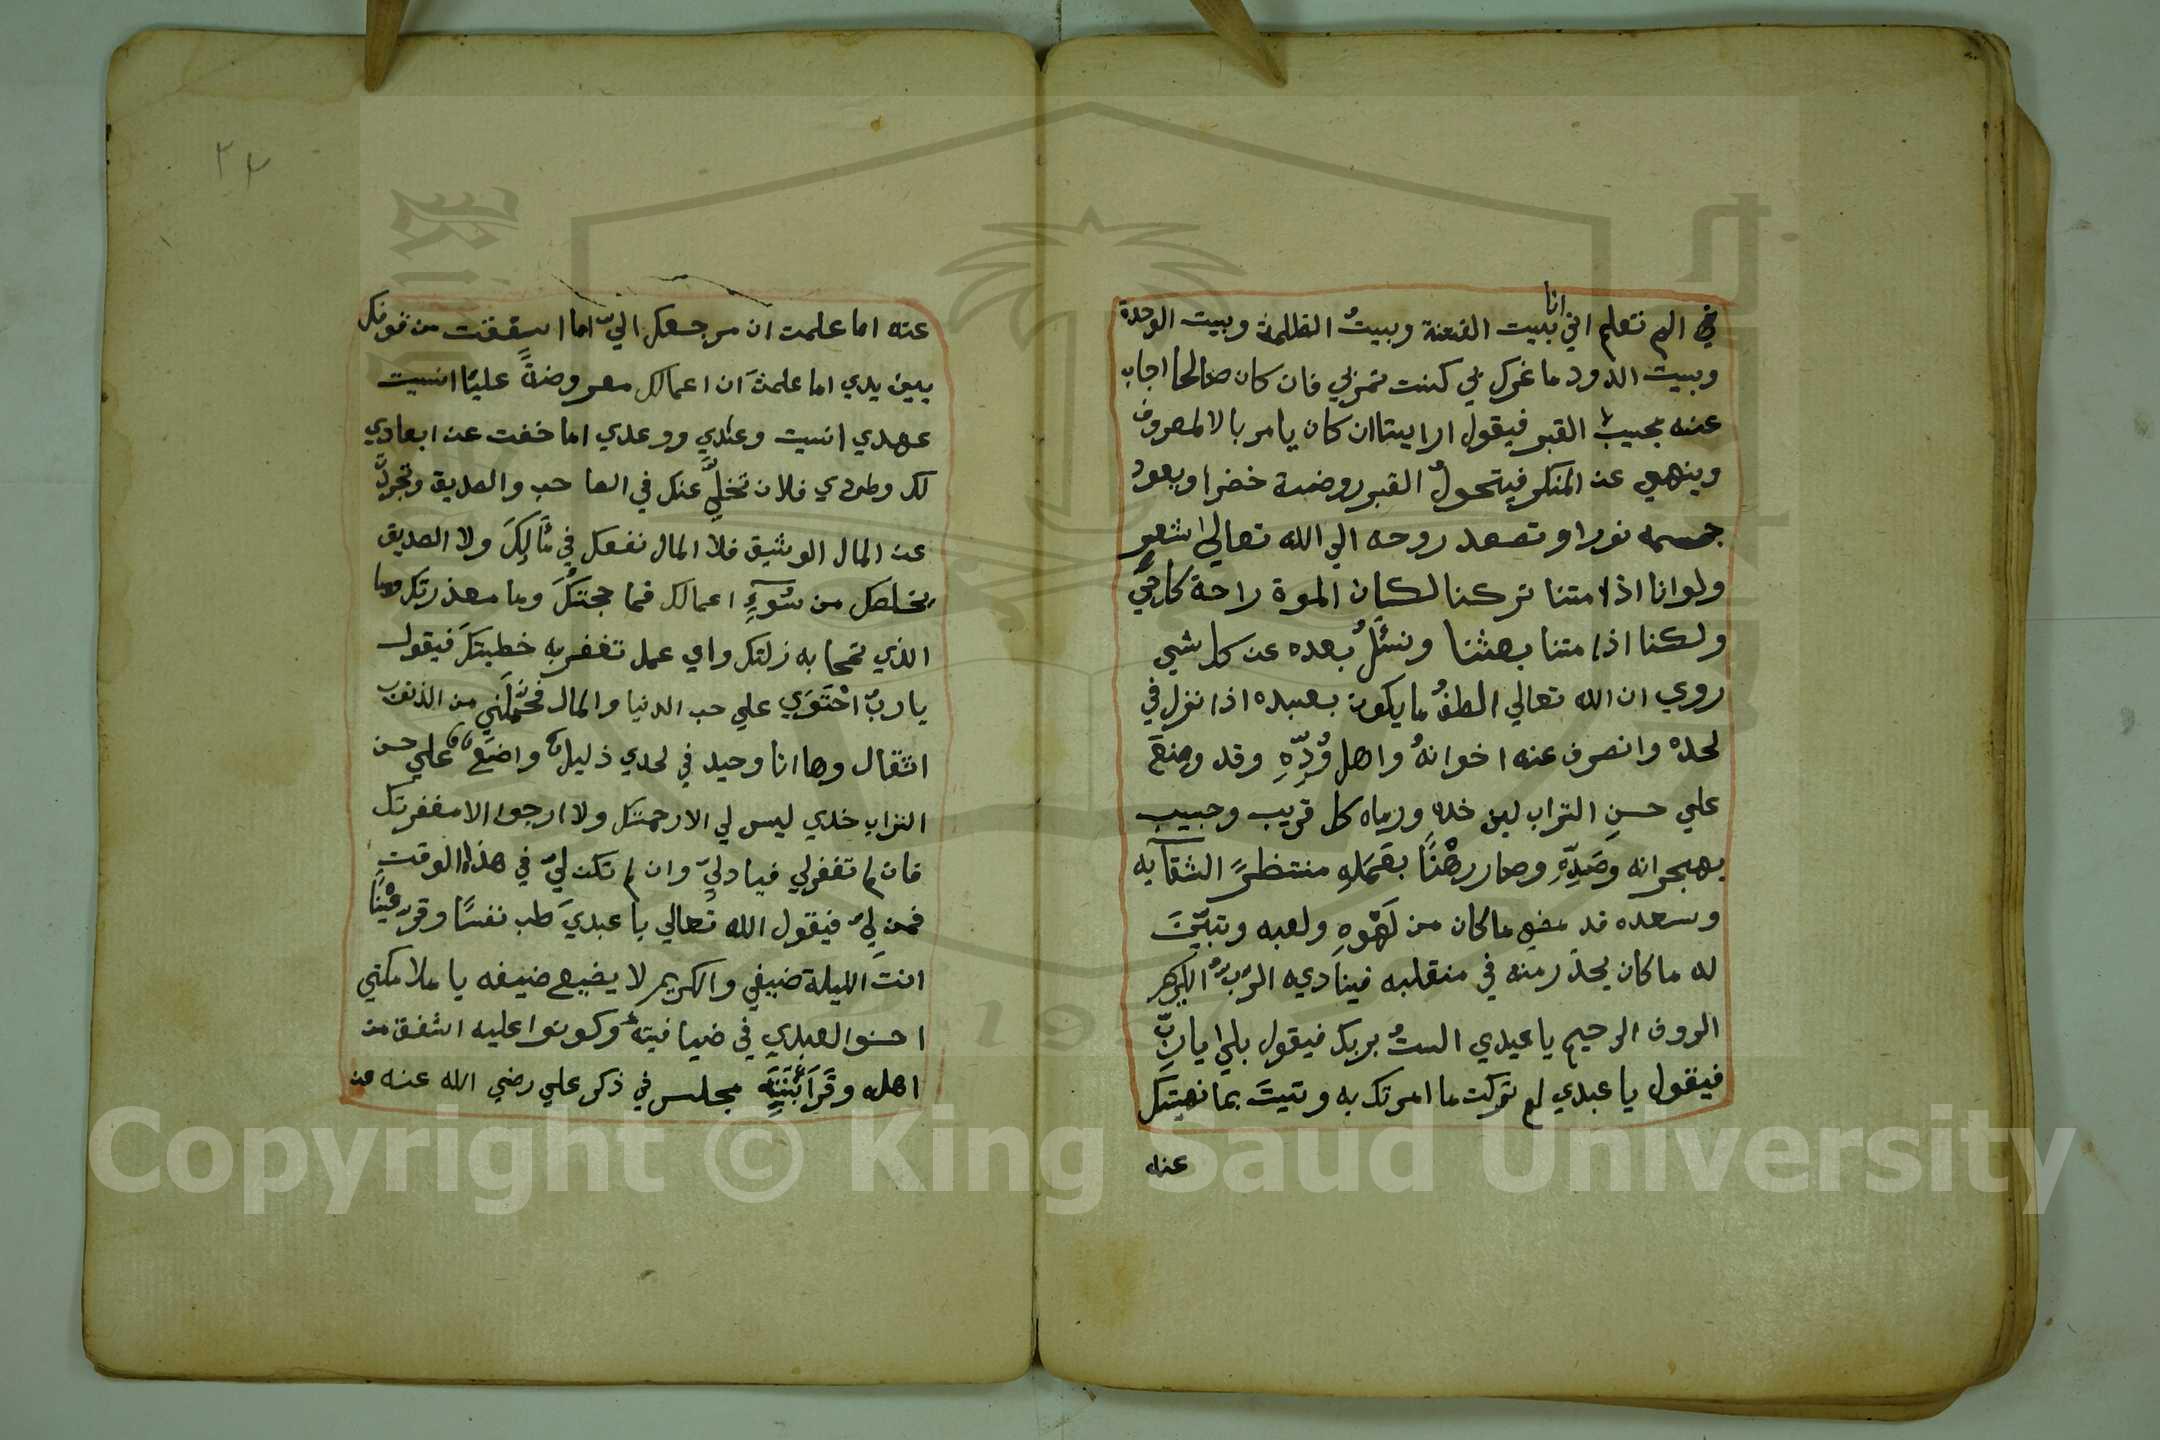 في الم تعلم اني انا بيت الفتنة وبيتُ الظلمة وبيت الوحدة
وبيت الدود ما غرك بي كنت تمر بي فان كان صالحا اجاب
عنه مجيب القبر فيقول ارايتا ان كان يامر بالالمعروف
وينهي عن المنكر فيتحولُ القبر روضة خضرا ويعود
جسمه نورا وتصعد روحه الي الله تعالي شعر
ولو انا اذا متنا تركنا لكان الموة راحة كل حي
ولكنا اذا متنا بعثنا ونسئلُ بعده عن كل شيي
روي ان الله تعالي الطفُ ما يكون بعبده اذا نزل في
لحده وانصرف عنه اخوانهُ واهل وُدِّهِ وقد وضع
علي حسن التراب لين خده ورماه كل قريب وحبيب
بهجرانه وَصَدِّهِ وصار رهْنًا بعَمَلِهِ منتظرً الشقآيه
وسعده قد مضي ما كان من لَهْوِهِ ولعبه وتبيَّنَ
له ما كان يحذر منه في منقلبه فيناديه الرَبُّ الكريم
الروف الرحيم يا عبدي الستُ بربك فيقول بلي يا ربِّ
فيقول يا عبدي لم تركت ما امرتك به وتيتَ بما نهيتك
عنه
٢٢
عنه اما علمت ان مرجعك اليّ اما اشفقت من قوتك
بين يدي اما علمتَ ان اعمالك معروضةً عليّا انسيت
عهدي انسيت وعيدي ووعدي اما خفت عن ابعادي
لك وطردي فلان تخلَّي عنك في الصاحب والصديق وتجردَّ
عن المال الوثيق فلا المال نفعك في مَآلِكَ ولا الصديق
يخلصك من سُوۤءِ اعمالك فما حجتُكَ وما معذرتك وما
الذي تمحا به زلتك واي عمل تغفر به خطيتكَ فيقول
يا ربّ احْتَوَي علي حب الدنيا والمال فحمَّلَني من الذنوب
اثقال وها انا وحيد في لحدي ذليل واضَع علي حسن
التراب خدي ليس لي الا رحمتك ولا ارجوا الا مغفرتك
فان لم تغفر لي فيا دلي وان لم تكن ليّ في هذا الوقت
فمن ليّ فيقول الله تعالي يا عبديَ طب نفسًا وقر عْينًا
انتَ الليلة ضيفي والكريم لا يضيع ضيفه يا ملاىكتي
احسنوا لعبدي في ضيافته وكونوا عليه اشفق من
اهله وقَرَائبَيِه مجلس في ذكر علي رضي الله عنه عن
Copyright © King Saud University
1957